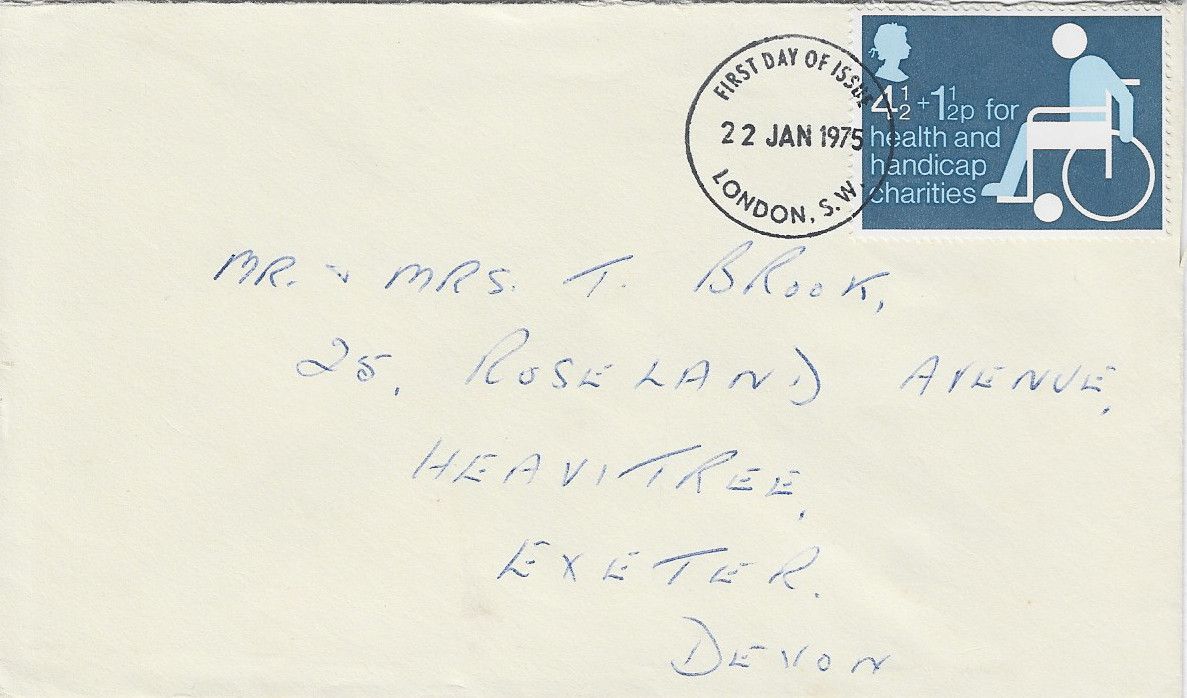 FIRST DAY OF ISSUE
22 JAN 1975
LONDON, S.W.
4½+1½p for
health and
handicap
charities
MR. & MRS. T. BROOK,
25, ROSELAND AVENUE,
HEAVITREE,
EXETER.
DEVON